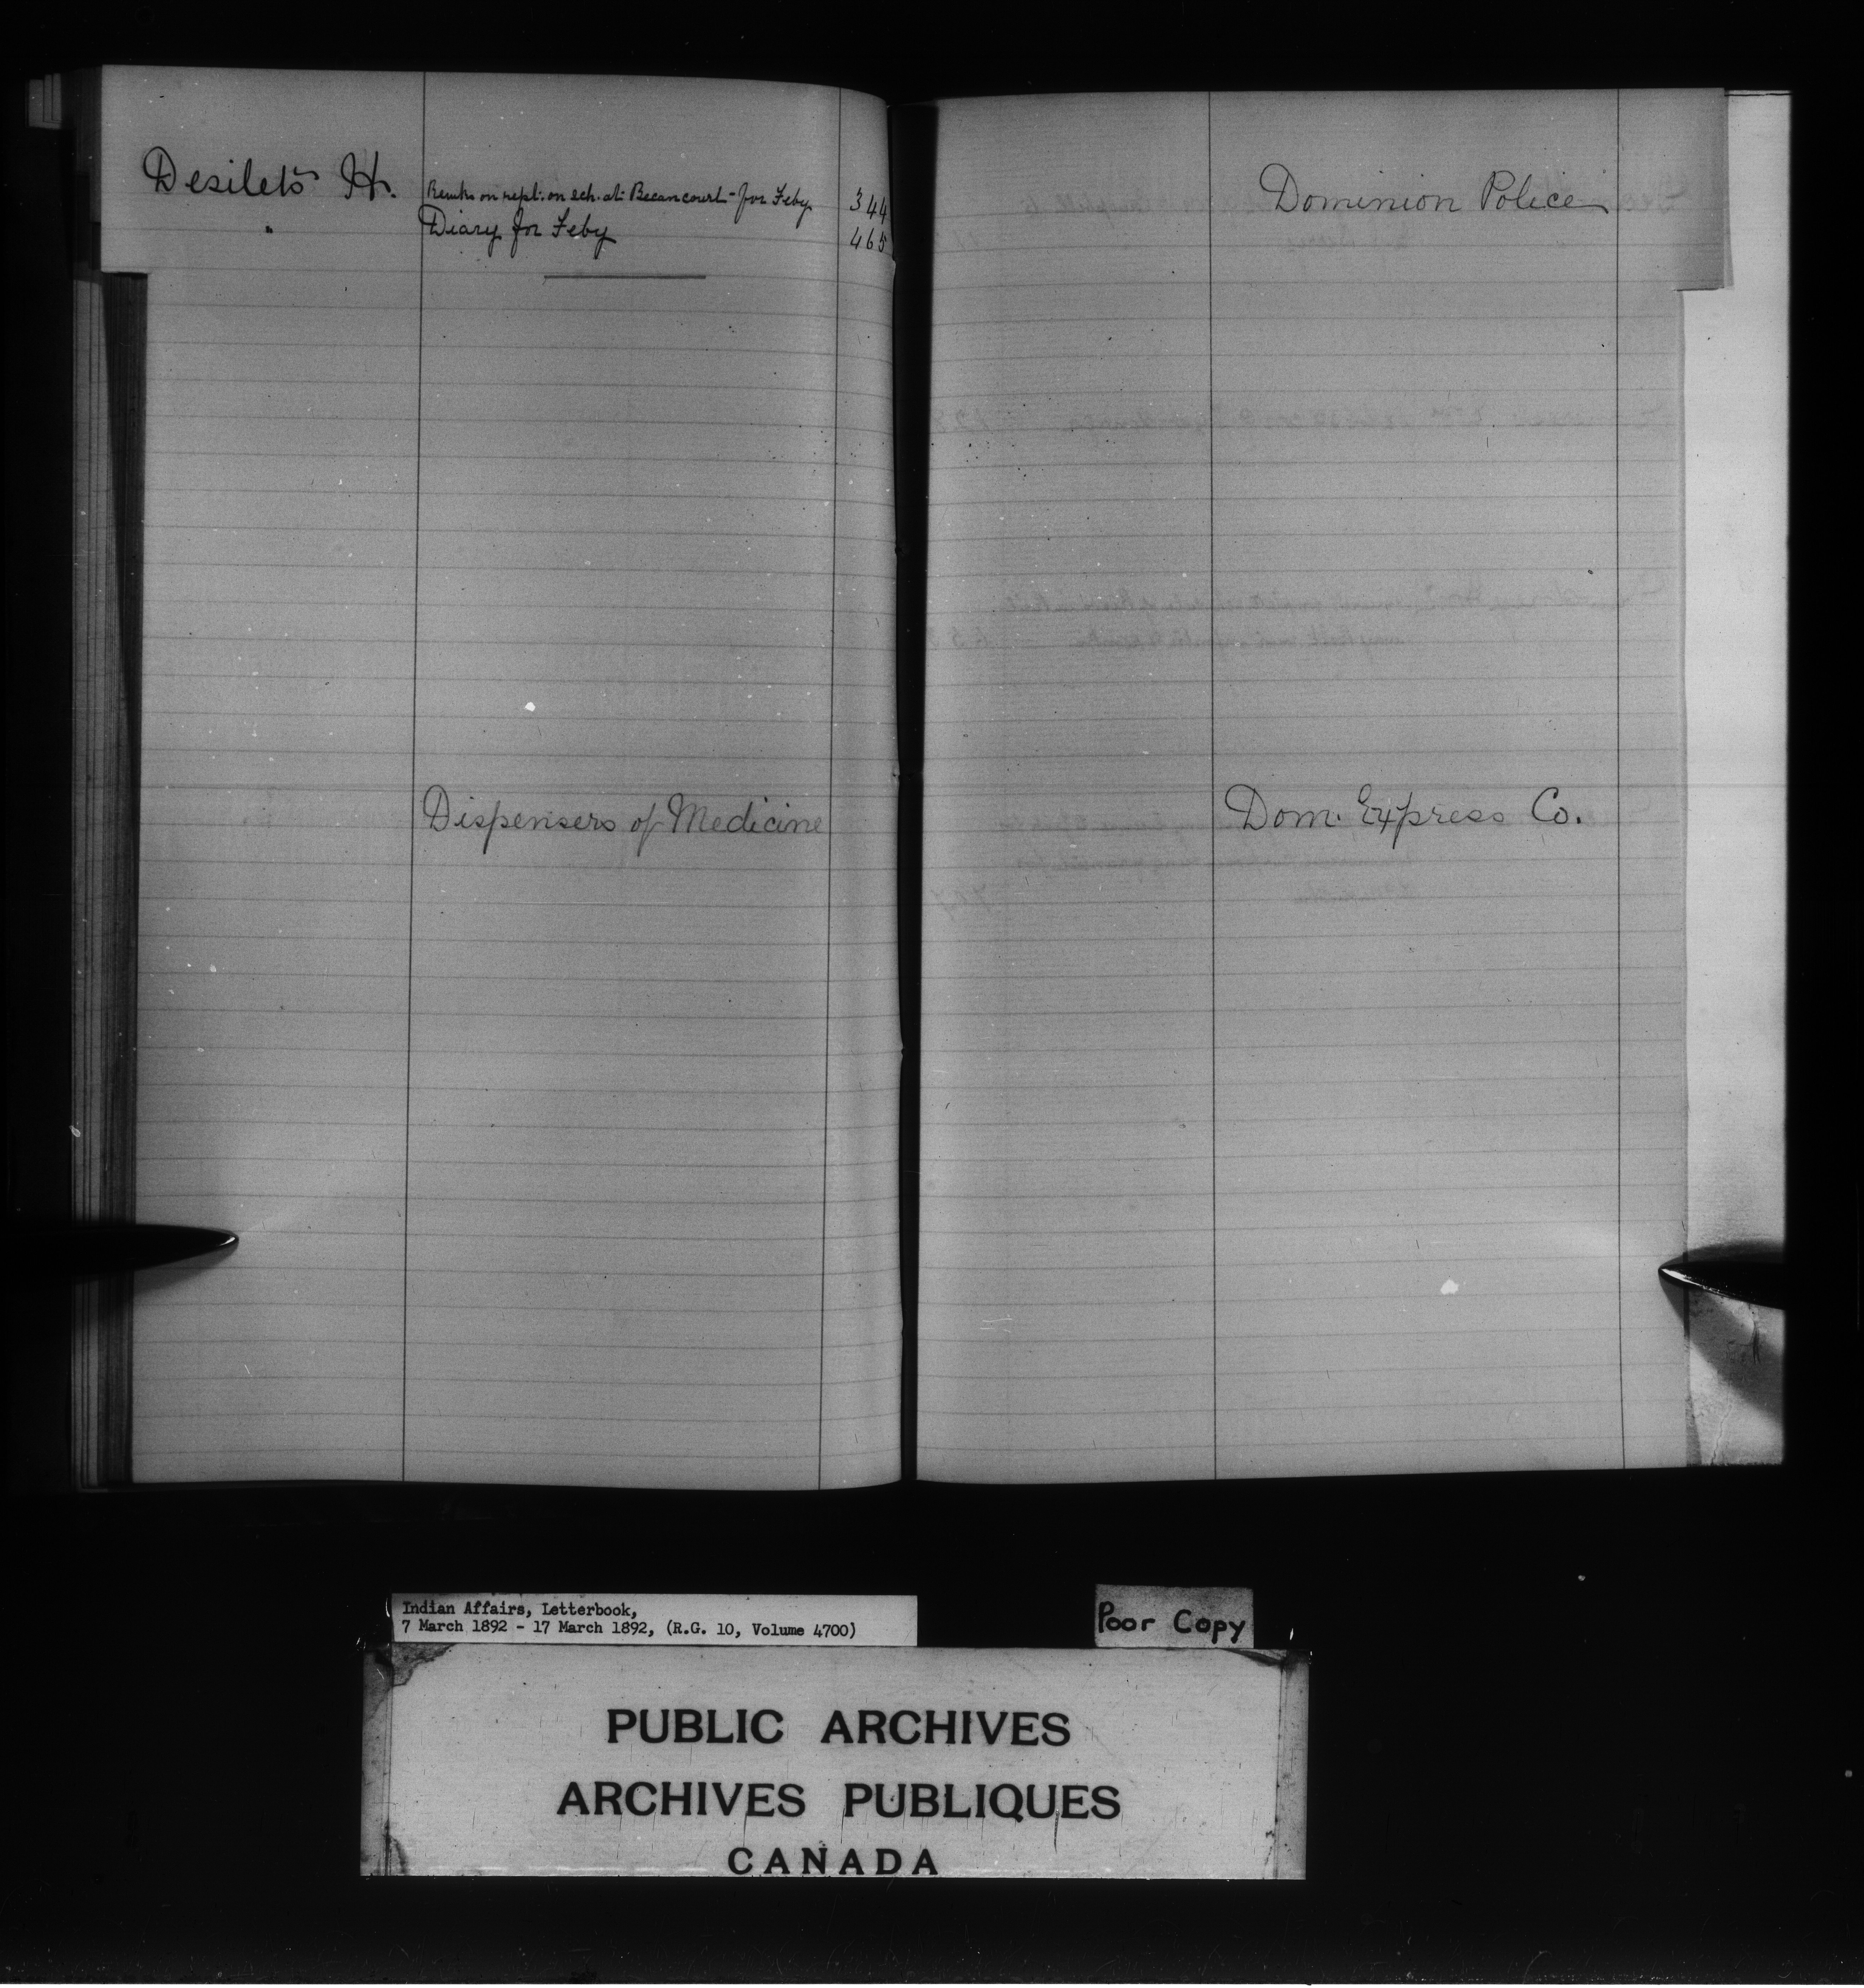 Desilets H. Remks on rept. on sch. at Becancourt for Feby 344
" Diary for Feby 465
Dispensers of Medicine
Dominion Police
Dom. Express Co.
Indian Affairs, Letterbook,
7 March 1892 - 17 March 1892, (R.G. 10, Volume 4700)
Poor Copy
PUBLIC ARCHIVES
ARCHIVES PUBLIQUES
CANADA